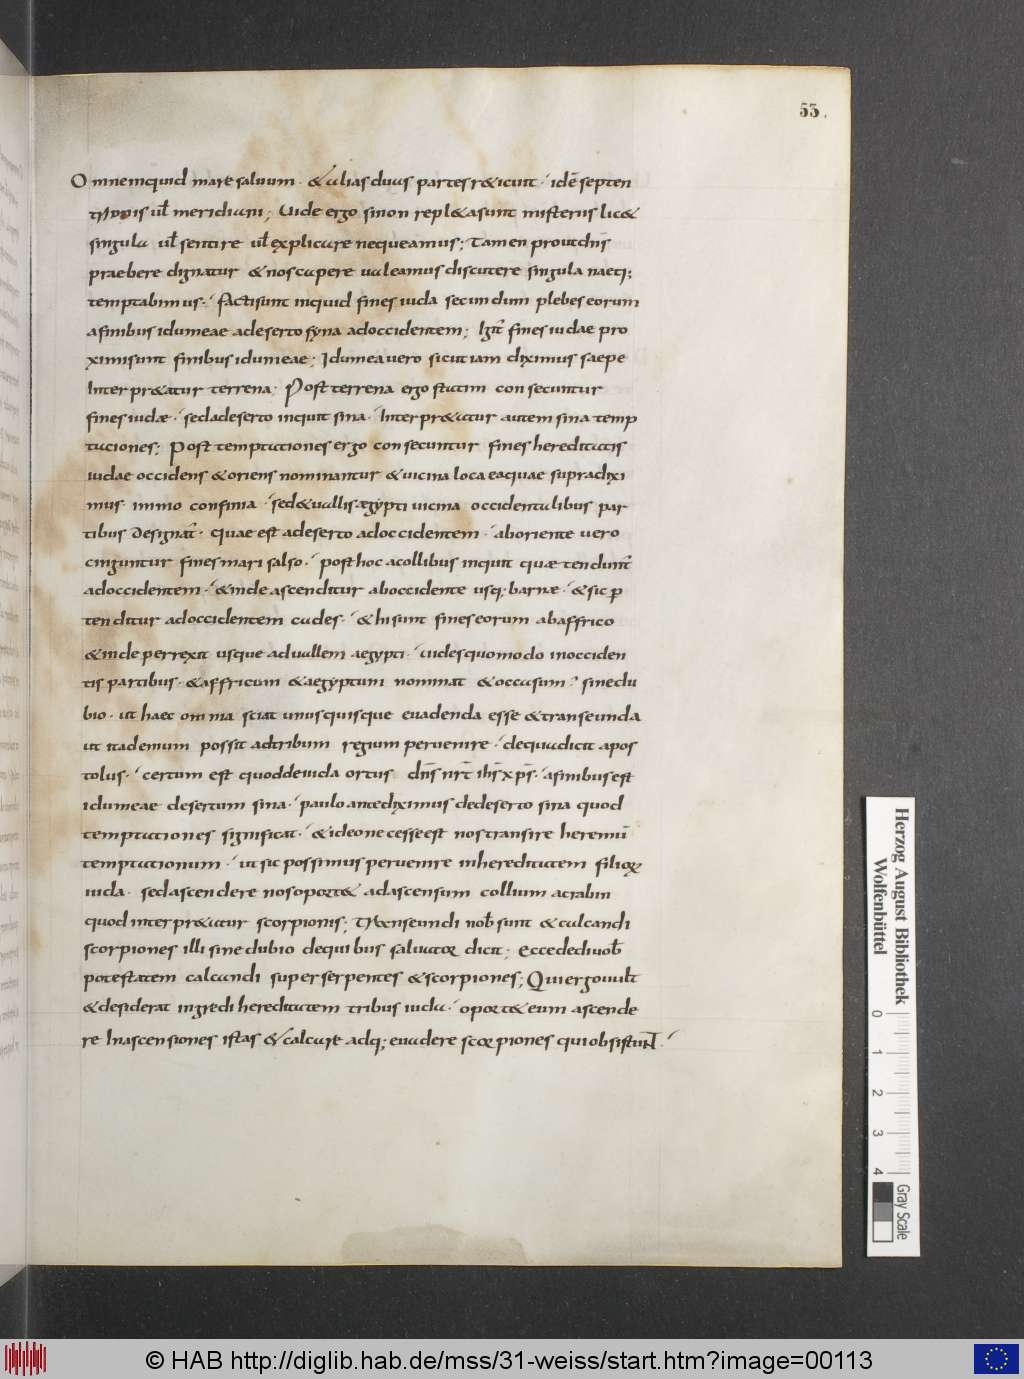 53.
Omne inquid mare salsum · & alias duas partes r&icuit · idē septen
trionis ul̄ meridiani; Uide ergo si non repl&a sunt misteriis lic&
singula ul̄ sentire ul̄ explicare nequeamus; Tamen prout dn̄s
praebere dignatur & nos capere ualeamus discutere singula naeq;
temptabimus · facti sunt inquid fines iuda secundum plebes eorum
a finibus idumeae a deserto syna ad occidentem; Igit̄ fines iudae pro
ximi sunt finibus idumeae; Idumea uero sicut iam diximus saepe
Interpr&atur terrena · Post terrena ergo statim consecuntur
fines iudæ · sed a deserto inquit sina · Interpr&atur autem sina temp
taciones; Post temptationes ergo consecuntur fines hereditatis
iudae occidens & oriens nominantur & uicina loca ea quae supra dixi
mus · immo confinia · sed & uallis ægypti uicina occidentalibus par
tibus designat̄ · quae est a deserto ad occidentem · ab oriente uero
cinguntur fines mari salso · post hoc a collibus inquit quæ tendunt̄
ad occidentem · & inde ascenditur ab occidente usq; barnæ · & sic p̱
tenditur ad occidentem cades · & hi sunt fines eorum ab affrico
& inde perrexit usque ad uallem aegypti · uides quomodo in occiden
tis partibus · & affricum & aegyptum nominat & occasum? sine du
bio · ut haec omnia sciat unusquisque euadenda esse & transeunda
ut ita demum possit ad tribum regium peruenire · de qua dicit apos
tolus · certum est quod de iuda ortus dn̄s nr̄t ih̄s xp̄s · a finibus est
idumeae desertum sina · paulo ante diximus de deserto sina quod
temptationes significat · & ideo necesse est nos transire heremū
temptationum · ut sic possimus peruenire in hereditatem filioꝝ
iuda · sed ascendere nos oport& ad ascensum collium acrabin
quod interpr&atur scorpionis; Transeundi nob̄ sunt & calcandi
scorpiones illi sine dubio de quibus saluator dicit; Ecce dedi uob̄
potestatem calcandi super serpentes & scorpiones; Qui ergo uult
& desiderat ingredi hereditatem tribus iuda · oport& eum ascende
re In ascensiones istas & calcare adq; euadere scorpiones qui obsistuNT ·
Herzog August Bibliothek
Wolfenbüttel
0 1 2 3 4
Gray Scale
© HAB http://diglib.hab.de/mss/31-weiss/start.htm?image=00113